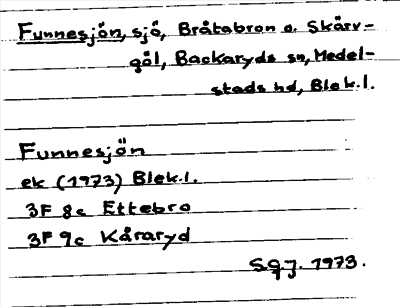 Funnesjön, sjö, Bråtabron o. Skärv-
göl, Backaryds sn, Medel-
stads hd, Blek.l.
Funnesjön
ek (1973) Blek.l.
3F 8c Ettebro
3F 9c Kåraryd
SGJ. 1973.